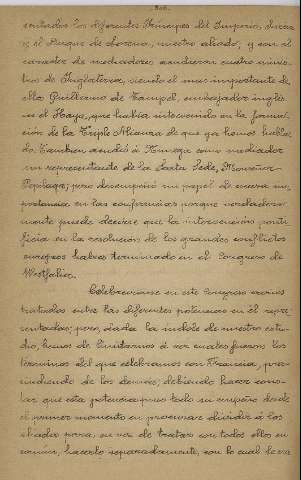 sentados los diferentes Príncipes del Imperio, Suecia
y el Duque de Lorena, nuestro aliado; y con el
caracter de mediadores mandaron cuatro minis-
tros de Inglaterra, siendo el mas importante de
ellos Guillermo de Tempel, embajador inglés
en el Haya, que había intervenido en la forma-
ción de la Triple Alianza de que ya hemos habla-
do. Tambien acudió á Nimega como mediador
un representante de la Santa Sede, Monseñor
Bevilaqua; pero desempeñó un papel de escasa im-
portancia en las conferencias porque verdadera-
mente puede decirse que la intervención ponti-
ficia en la resolución de los grandes conflictos
europeos habia terminado en el Congreso de
Westfalia.
Celebráronse en este Congreso varios
tratados entre las diferentes potencias en él repre-
sentadas; pero, dada la indole de nuestro estu-
dio, hemos de limitarnos á ver cuales fueron los
términos del que celebramos con Francia, pres-
cindiendo de los demas; debiendo hacer cons-
tar que esta potencia puso todo su empeño desde
el primer momento en procurar dividir á los
aliados para, en vez de tratar con todos ellos en
comun, hacerlo separadamente, con lo cual le era